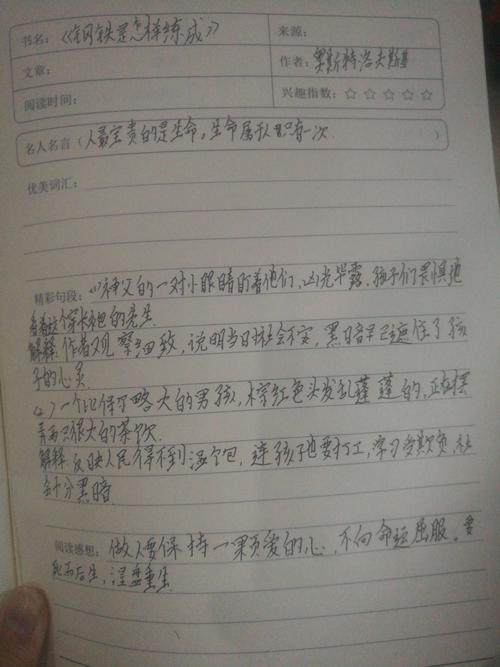 书名：《钢铁是怎样练成》
来源：
文章：
作者：奥斯特洛夫斯基
阅读时间：
兴趣指数：☆ ☆ ☆ ☆ ☆
名人名言（人最宝贵的是生命。生命属于人只有一次）
优美词汇：
精彩句段：(1)神父的一对小眼睛盯着他们，凶光毕露，孩子们畏惧地
看着这个穿长袍的先生
解释：作者观察细致，说明当日社会不安，黑暗早已遮住了孩
子的心灵
(2)一个比保尔略大的男孩，棕红色头发乱蓬蓬的，正在摆
弄两只很大的茶炊
解释：反映人民得不到温饱，连孩子也要打工，学习多欺负 社
会十分黑暗
阅读感想：做人要保持一颗爱的心，不向命运屈服。要
死而后生，涅盘重生